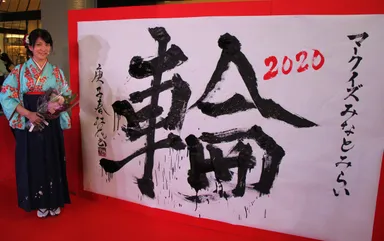 マークイズみなとみらい
2020
輪
庚子春